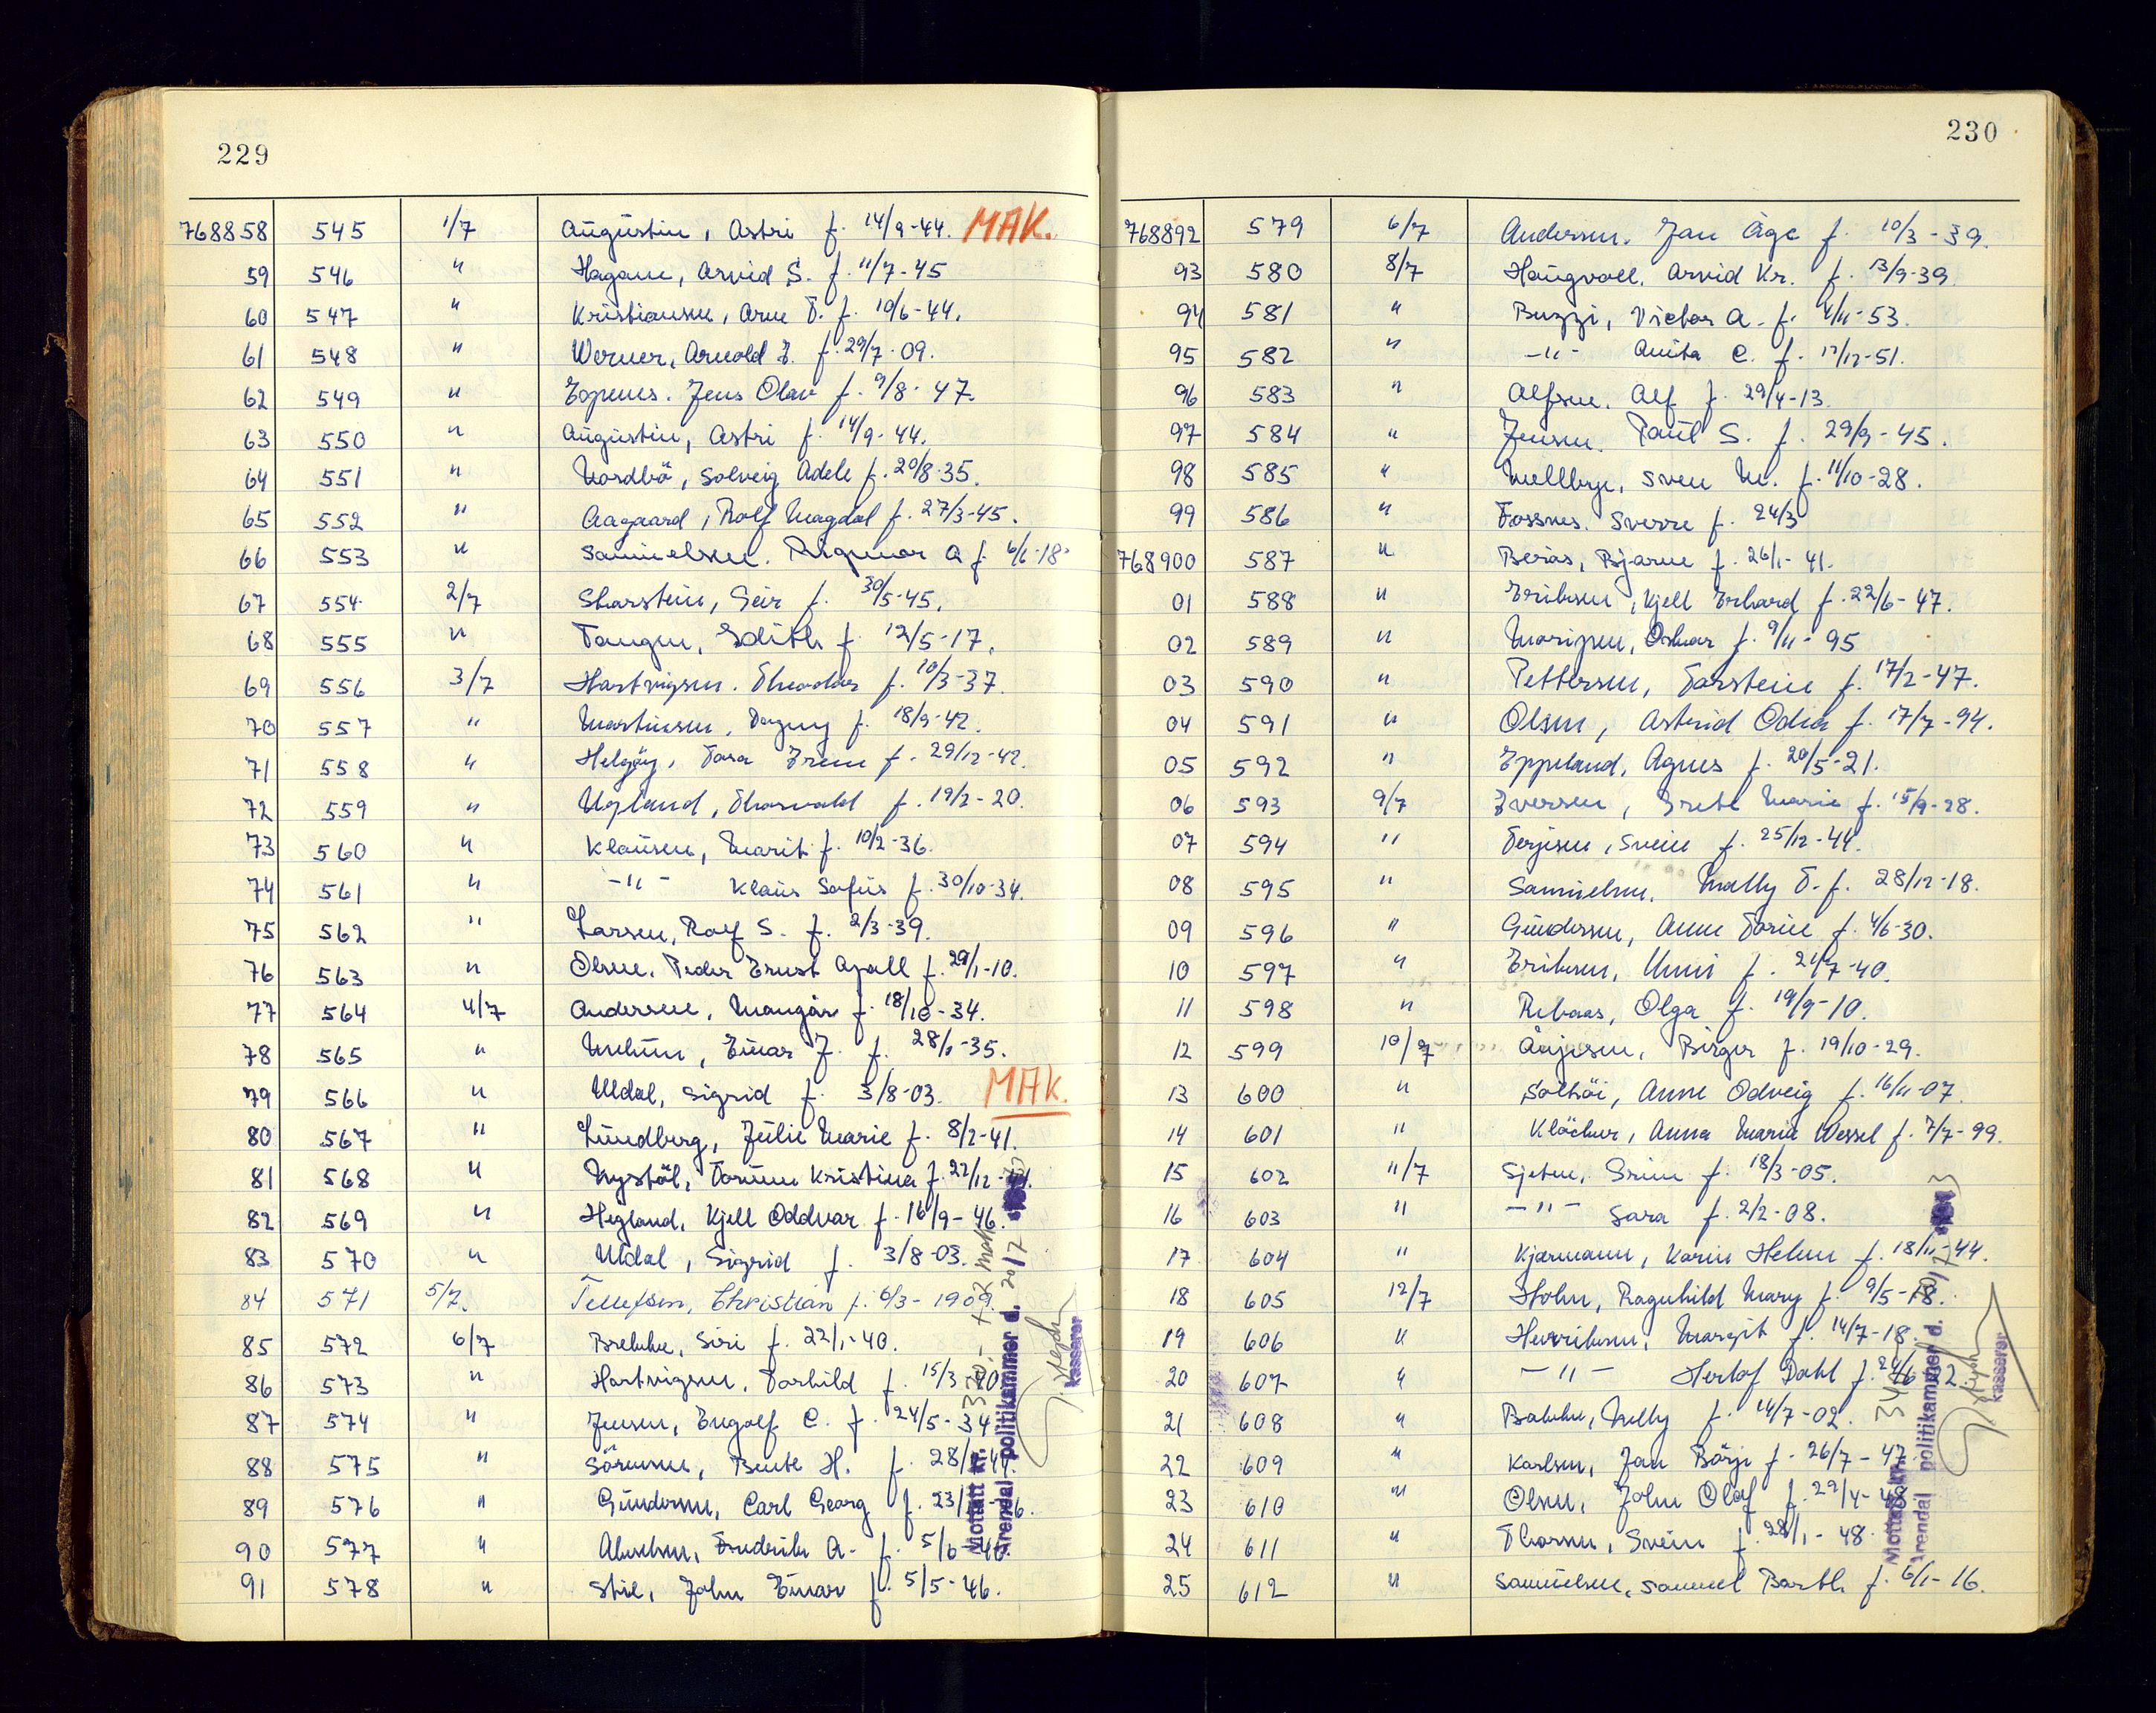 229
768858 545 1/7 Augustin, Astri f. 14/9-44. MAK.
59 546 " Hagane, Arvid S. f. 11/7-45
60 547 " Kristiansen, Arne T. f. 10/6-44.
61 548 " Werner, Arnold I. f. 29/7-09.
62 549 " Espenes. Jens Olav f. 9/8-47.
63 550 " Augustin, Astri f. 14/9-44.
64 551 " Nordbö, Solveig Adele f. 20/8-35.
65 552 " Aagaard, Rolf Magdal f. 27/3-45.
66 553 " Samuelsen. Ragnvar A f. 6/6-18
67 554 2/7 Skarstein, Geir f. 30/5-45.
68 555 " Tangen, Edith f. 12/5-17.
69 556 3/7 Hartvigsen. Theodor f. 10/3-37.
70 557 " Martinsen, Dagny f. 18/9-42.
71 558 " Helgöy, Tora Irene f. 29/12-42.
72 559 " Ugland, Thorvald f. 19/2-20.
73 560 " Klausen, Marit f. 10/2-36.
74 561 " -"- Klaus Sofus f. 30/10-34.
75 562 " Larsen, Rolf S. f. 2/3-39.
76 563 " Olsen. Peder Ernst f. 29/1-10.
77 564 4/7 Andersen, Maugår f. 18/10-34.
78 565 " Einar J. f. 28/1-35.
79 566 " Uldal, Sigrid f. 3/8-03. MAK.
80 567 " Lundberg, Julie Marie f. 8/2-41.
81 568 " Nystöl, Torunn Kristina f. 22/12-
82 569 " Hegland, Kjell Oddvar f. 16/9-46.
83 570 " Uldal, Sigrid f. 3/8-03.
84 571 5/7. Tellefsen, Christian f. 6/3-1909.
85 572 6/7 Brekke, Siri f. 22/1-40.
86 573 " Hartvigsen, Torhild f. 15/3
87 574 " Jensen, Ingolf C. f. 24/5-34
88 575 " Sörensen, Bente H. f. 28/
89 576 " Gundersen, Carl Georg f. 23/
90 577 " Fredrik A. f. 5/6-46.
91 578 " Stie, John Einar f. 5/5-46.
Mottatt kr. 350.- + 2 mak
Arendal politikammer d. 20/7
kasserer
230
768892 579 6/7 Andersen. Jan Åge f. 10/3-39.
93 580 8/7 Haugvoll. Arvid Kr. f. 13/9-39.
94 581 " Buzzi, Victor A. f. 4/11-53.
95 582 " -"- Anita C. f. 12/12-51.
96 583 " Alfsen. Alf f. 29/4-13.
97 584 " Jensen. Paul S. f. 29/9-45.
98 585 " Mellbye, Sven M. f. 11/10-28.
99 586 " Fossnes. Sverre f. 24/3
768900 587 " Berås, Bjarne f. 26/1-41.
01 588 " Eriksen, Kjell Erhard f. 22/6-47.
02 589 " Oskar f. 9/11-95
03 590 " Pettersen, Torstein f. 17/2-47.
04 591 " Olsen, Astrid Odna f. 17/7-94.
05 592 " Eppeland, Agnes f. 20/5-21.
06 593 9/7 Iversen, Grete Marie f. 15/9-28.
07 594 " Terjesen, Svein f. 25/12-44.
08 595 " Samuelsen. Mally T. f. 28/12-18.
09 596 " Gundersen, Anne Torine f. 4/6-30.
10 597 " Eriksen, Unni f. 21/7-40.
11 598 " Rebaas, Olga f. 19/9-10.
12 599 10/7 Åsjesen, Birger f. 19/10-29.
13 600 " Solhöi, Anne Odveig f. 16/11-07.
14 601 " Klöcker, Anna Maria Wessel f. 7/7-99.
15 602 11/7 Sjeten, Grim f. 18/3-05.
16 603 " -"- Sara f. 2/2-08.
17 604 " Kjærmann, Karin Helen f. 18/11-44.
18 605 12/7 Holm, Ragnhild Mary f. 9/5-18.
19 606 " Henriksen, Margit f. 14/7-18.
20 607 " -"- Herlof Dahl f. 24/6-12.
21 608 " Bakke, Nelly f. 14/7-02.
22 609 " Karlsen, Jan Börje f. 26/7-47.
23 610 " Olsen, John Olaf f. 29/4-
24 611 " Thorsen, Svein f. 28/1-48
25 612 " Samuelsen, Samuel Barth f. 6/1-16.
Mottatt kr. 340
Arendal politikammer d.
kasserer